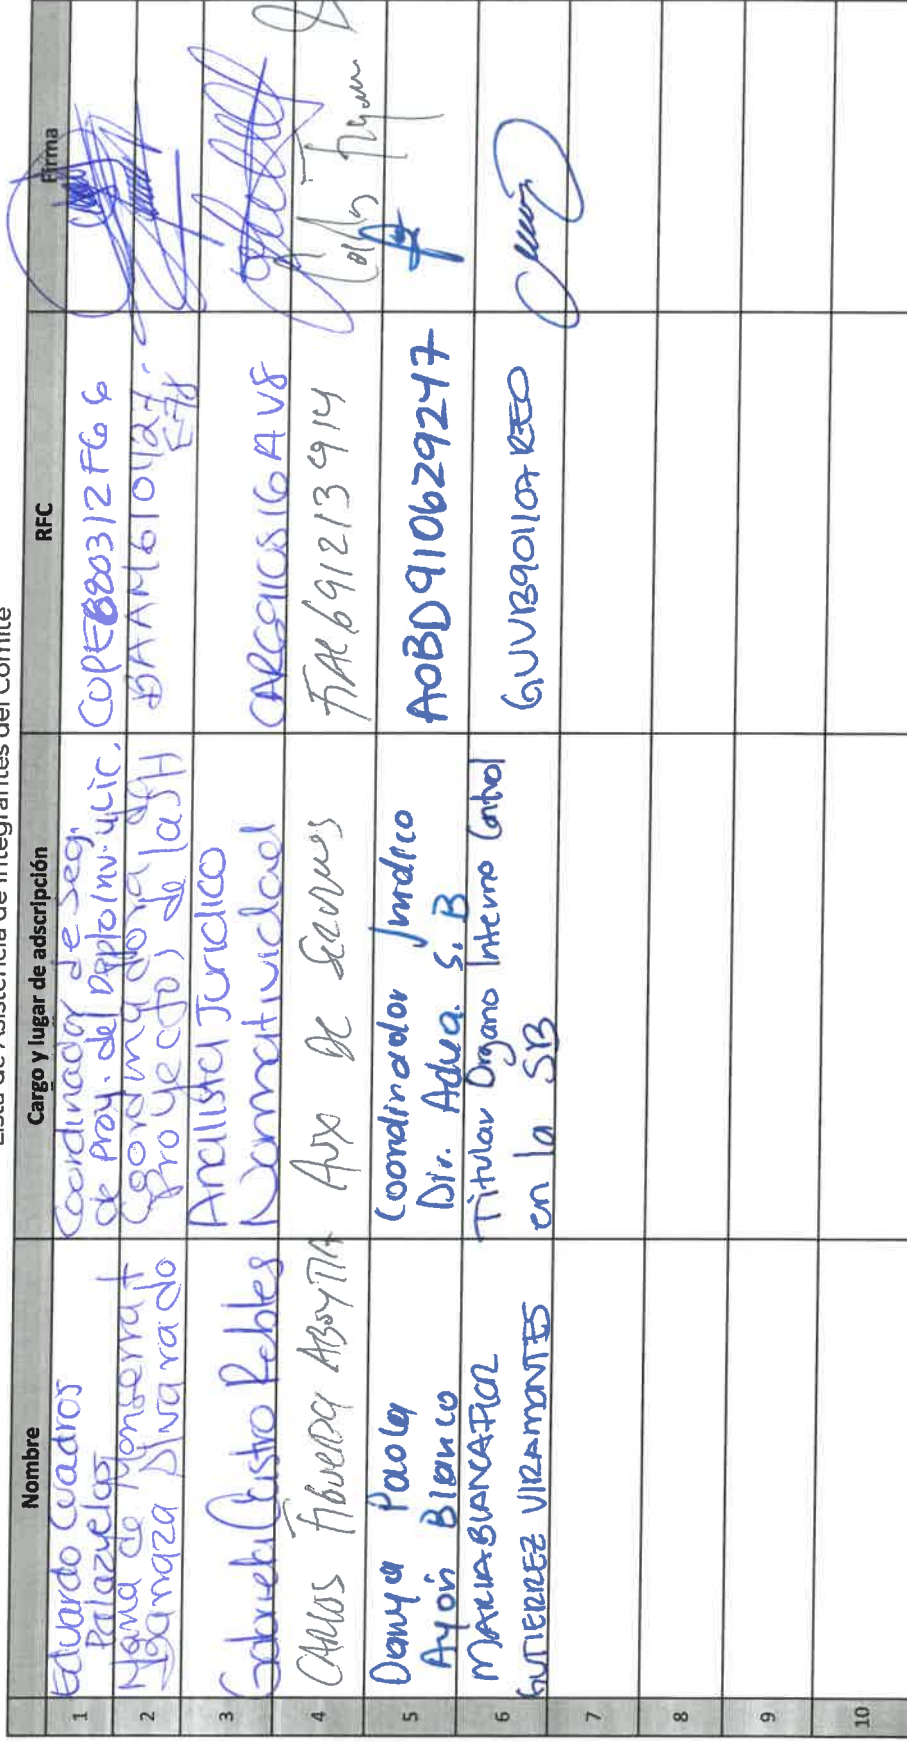 Lista de Asistencia de Integrantes del Comité
Nombre Cargo y lugar de adscripción RFC Firma
1 Eduardo Cuadros Palazuelos
Coordinador de Seg.
de Proy. del Dpto Inv. y Lic.
COPE880312FG6
2 María de Monserrat
Alvarado
Coordinadora de
Proyectos de la SH
3 Gabriela Castro Robles
Analista Jurídico
Normatividad
CARG910516AV8
4 CARLOS FIGUEROA ABOYTIA
AUX DE
FIAC691213914
5 Danya Paola
Ayón Blanco
Coordinador Jurídico
Dir. Adva. S.B
AOBD910629247
6 MARIA BLANCAFLOR
GUTIERREZ VIRAMONTES
Titular Órgano Interno Control
en la SB
7
8
9
10